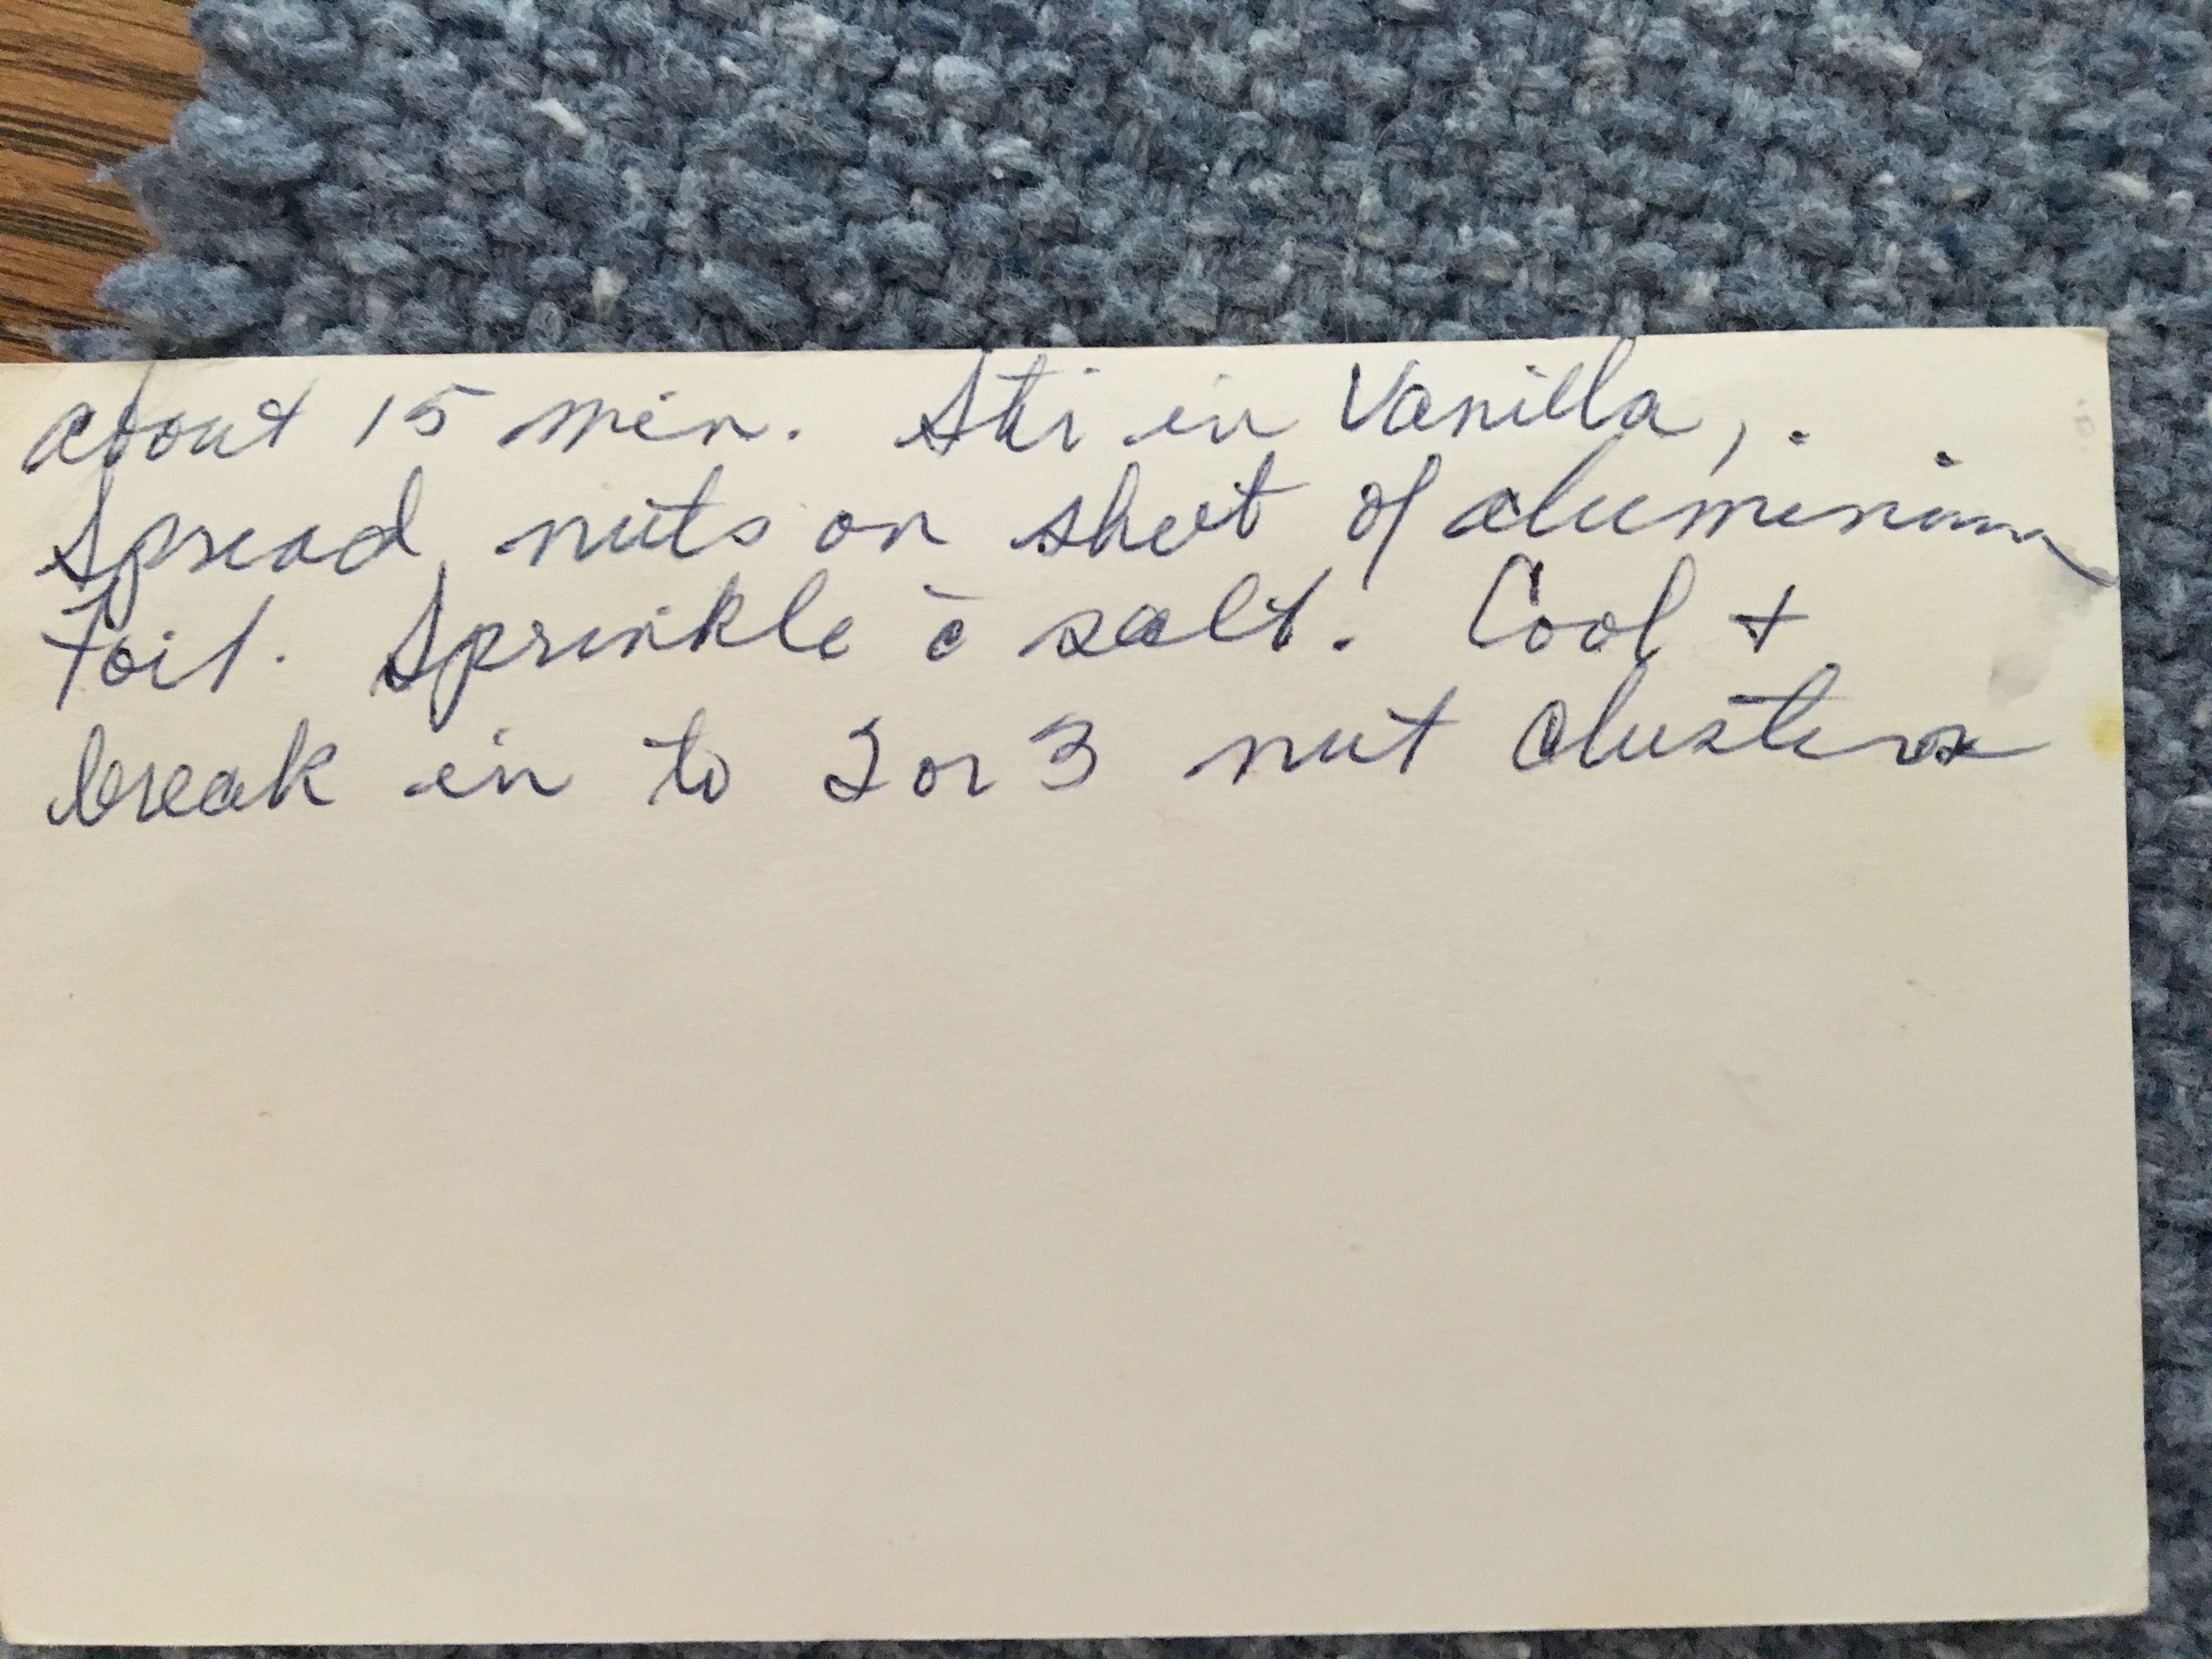 about 15 min. Stir in Vanilla, .
Spread nuts on sheet of aluminum
Foil. Sprinkle c̄ salt. Cool +
break in to 2 or 3 nut clusters